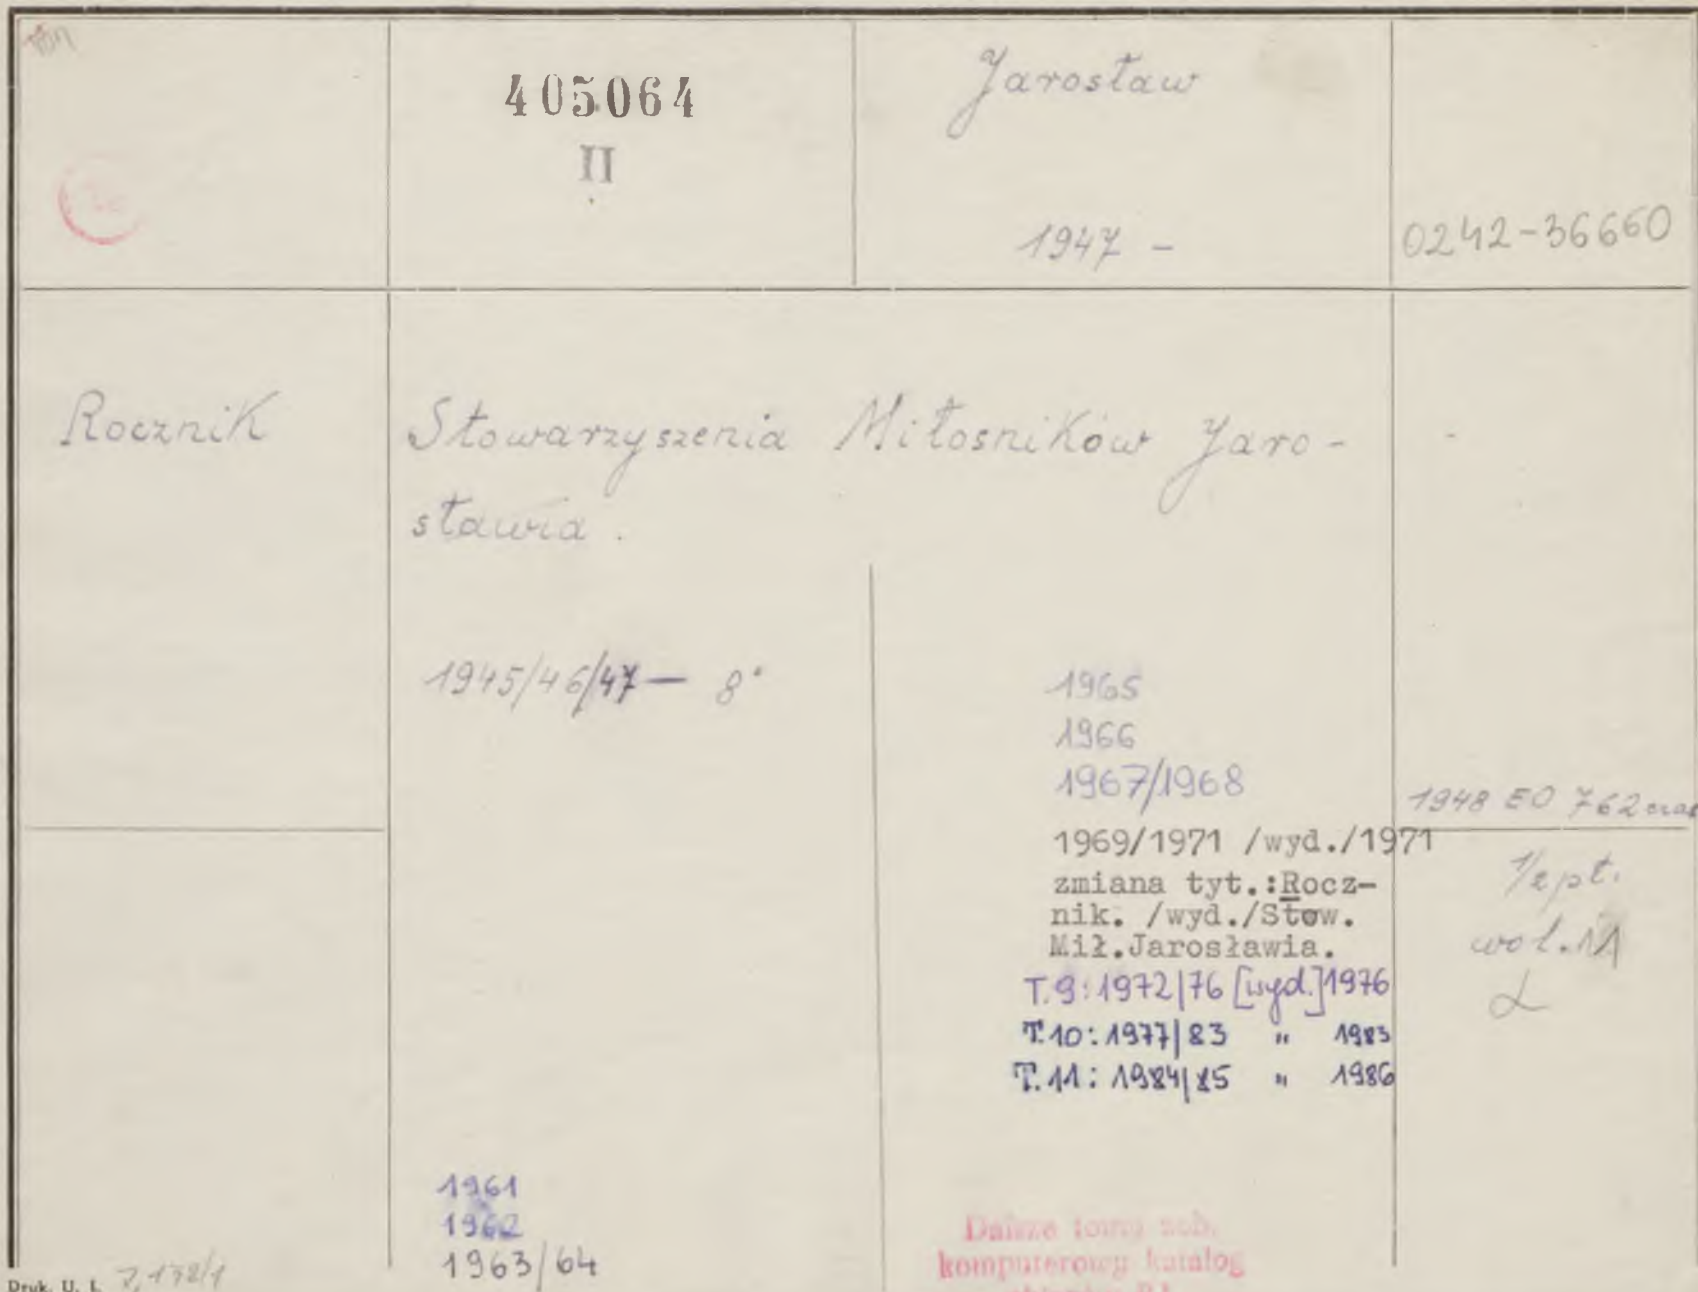 405064
II
Jarosław
1947 -
0242-36660
Rocznik
Stowarzyszenia Miłosników Jaro-
sławia.
1945/46/47 — 8°
1961
1962
1963/64
1965
1966
1967/1968
1969/1971 /wyd./1971
zmiana tyt.:Rocz-
nik. /wyd./Stow.
Mił.Jarosławia.
T.9:1972/76 [wyd.]1976
T.10:1977/83 " 1983
T.11: 1984/85 " 1986
1948 EO 762 czas
wol. 11
Dalsze tomy zob.
komputerowy katalog
Druk. U. J.